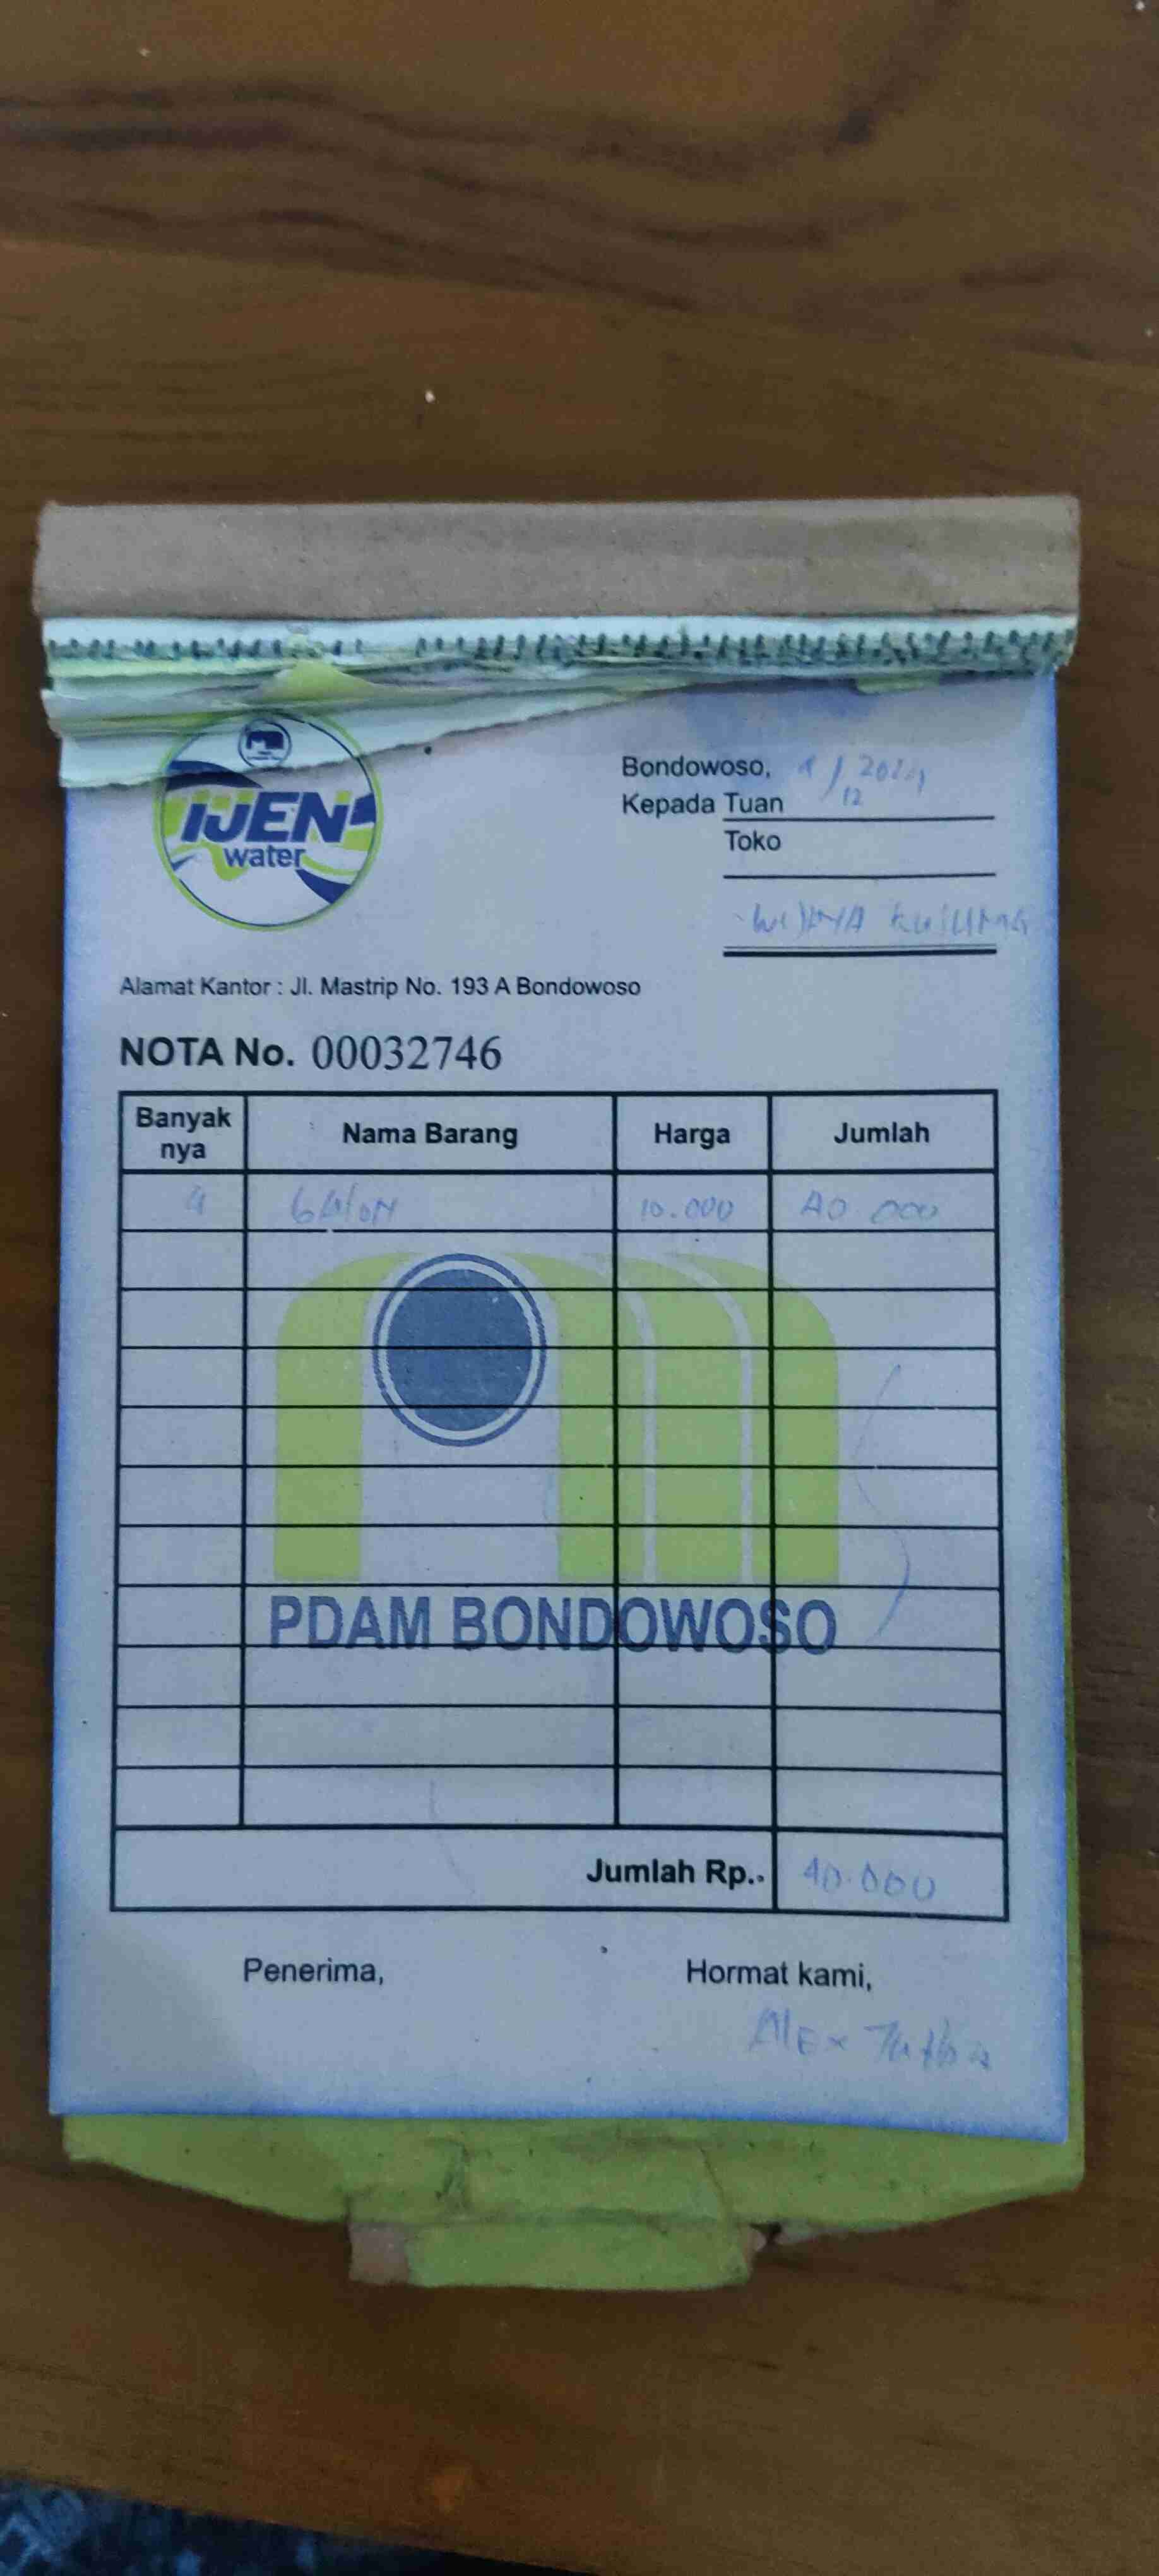 IJEN
water
Bondowoso, /12 2024
Kepada Tuan
Toko
WIJAYA KUSUMA
Alamat Kantor : Jl. Mastrip No. 193 A Bondowoso
NOTA No. 00032746
Banyak nya Nama Barang Harga Jumlah
4 GALON 10.000 40 000
PDAM BONDOWOSO
Jumlah Rp.. 40.000
Penerima, Hormat kami,
Alex